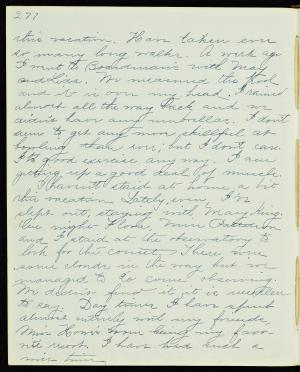 277
this vacation. Have taken ever
so many long walks. A week ago
I went to Boardman's with May
and Lisa. We measured the Pool
and it is over my head. It rained
almost all the way back and we
didn't have any umbrellas. I don't
seem to get any more skillful at
bowling than ever; but I don't care
It's good exercise any way. I am
getting up a good deal of muscle.
I haven't staid at home a bit
this vacation. Lately, even, I've
slept out, staying with Mary King.
One night Flora, Miss Patterson
and I staid at the observatory to
look for the comet. There were
some clouds in the way but we
managed to do some observing.
We didn't find it, it is needless
to say. Day times I have spent
almost entirely with my friends,
Miss Horn's room being my favo-
rite resort. I have had such a
nice time